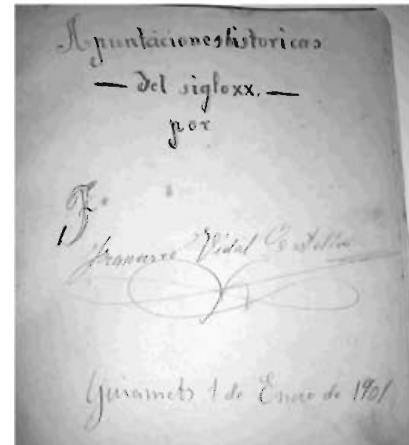 Apuntaciones historicas
— del siglo xx. —
por
F.
Francisco Vidal
Guiamets 1 de Enero de 1901